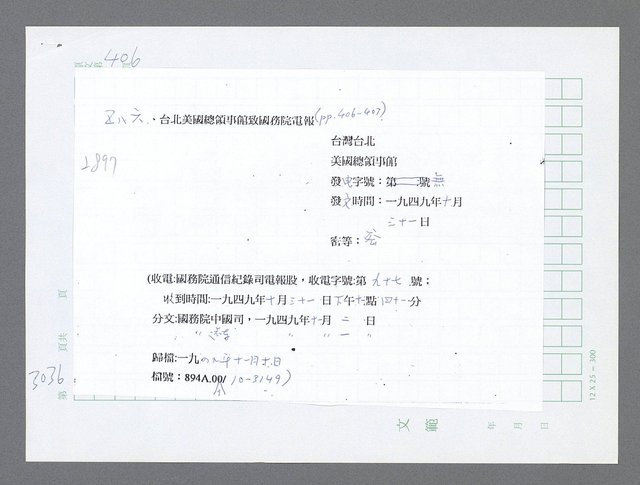 406
五八六、台北美國總領事館致國務院電報(pp.406-407)
2897
台灣台北
美國總領事館
發電字號：第 號無
發文時間：一九四九年十月
三十一日
密等：密
(收電:國務院通信紀錄司電報股，收電字號:第 九十七 號；
收到時間:一九四九年十月三十一日下午 點四十一分
分文:國務院中國司，一九四九年十一月 二 日
〃 〃 〃 一 〃
歸檔:一九四九年十一月 日
檔號：894A.00/10-3149)
3036
第 頁共 頁
文範
年 月 日
12 X 25 — 300